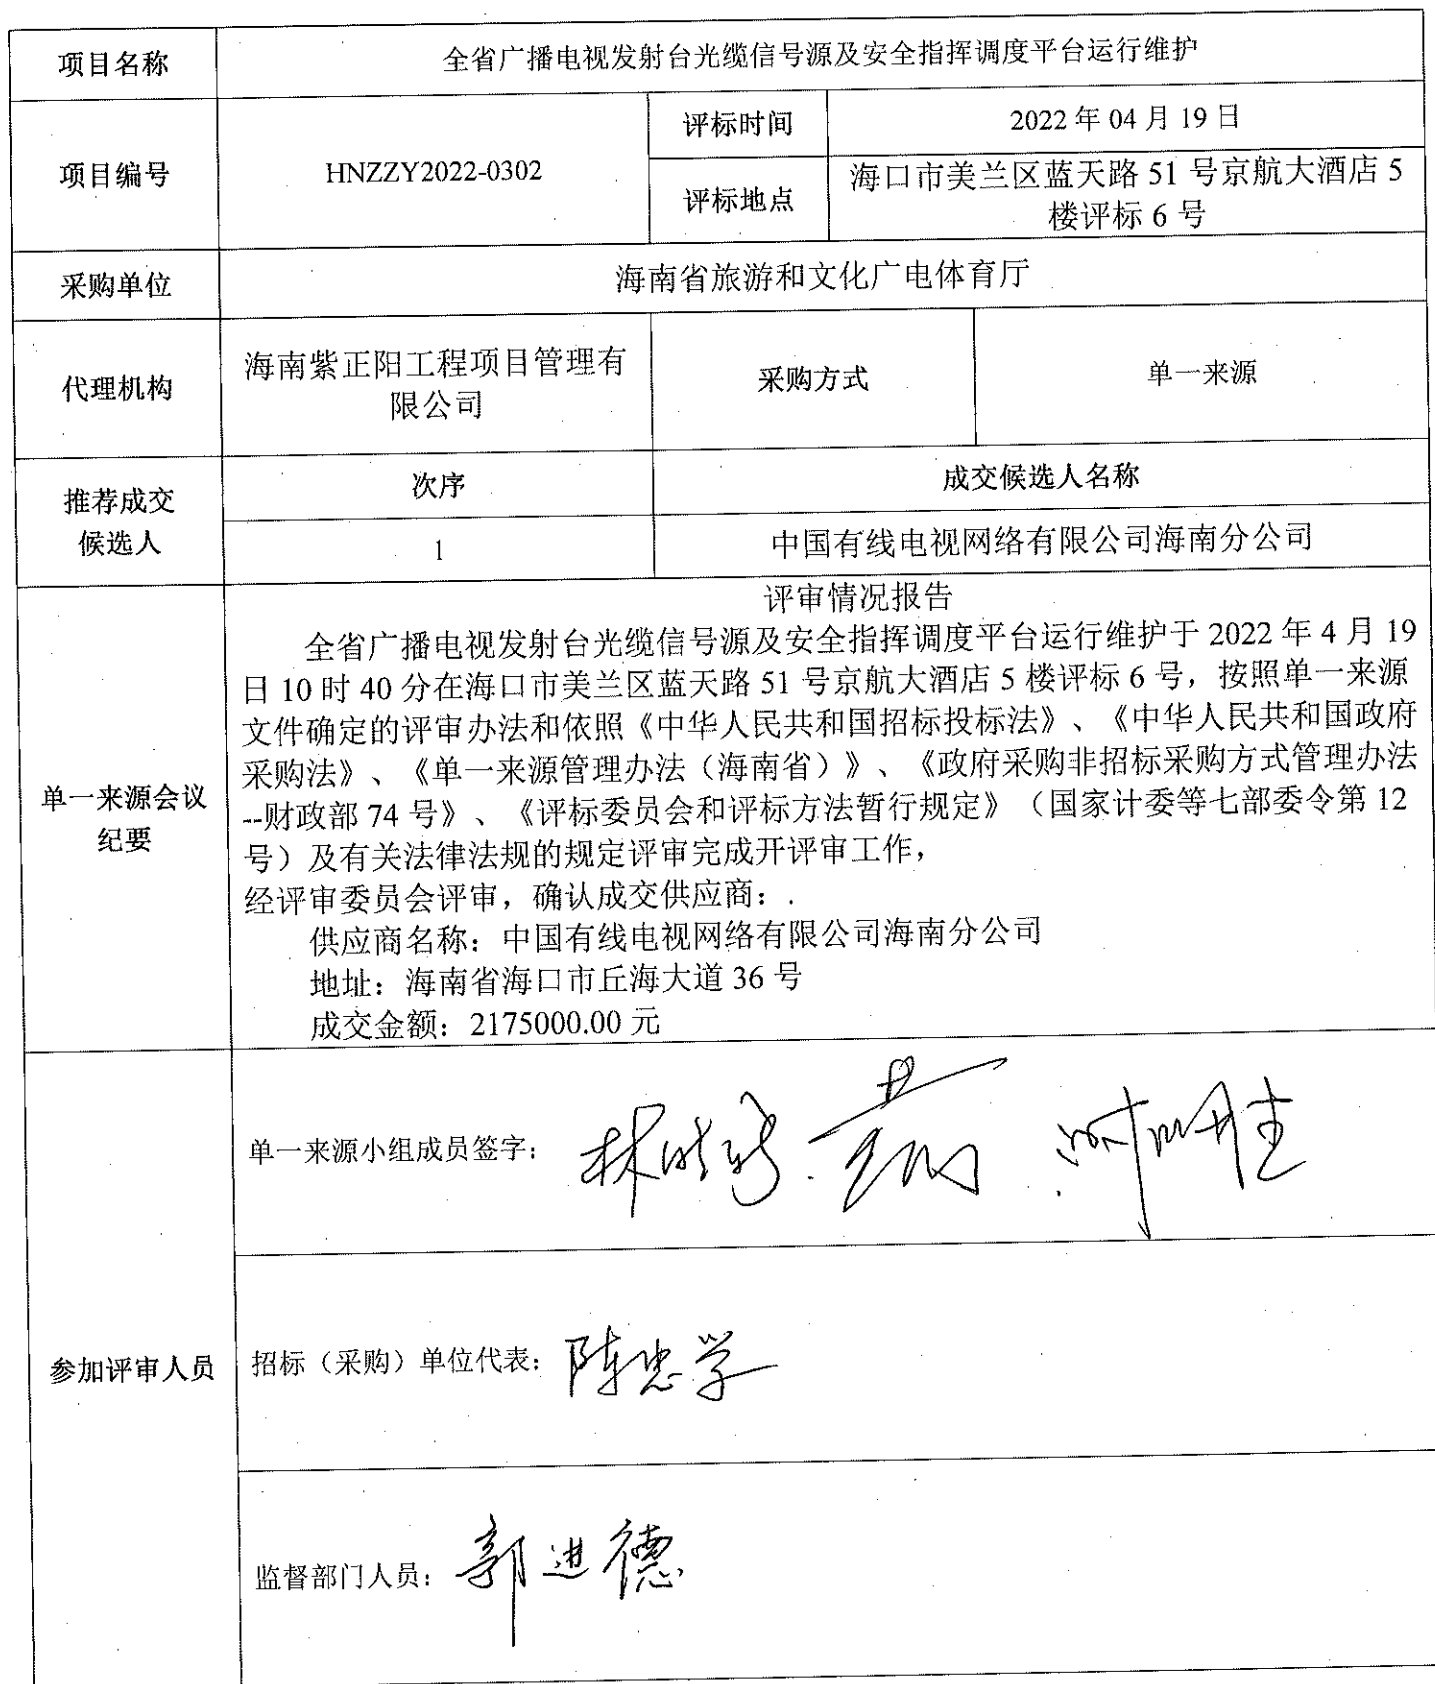 项目名称
全省广播电视发射台光缆信号源及安全指挥调度平台运行维护
项目编号
HNZZY2022-0302
评标时间
2022 年 04 月 19 日
评标地点
海口市美兰区蓝天路 51 号京航大酒店 5
楼评标 6 号
采购单位
海南省旅游和文化广电体育厅
代理机构
海南紫正阳工程项目管理有
限公司
采购方式
单一来源
推荐成交
候选人
次序
成交候选人名称
1
中国有线电视网络有限公司海南分公司
单一来源会议
纪要
评审情况报告
全省广播电视发射台光缆信号源及安全指挥调度平台运行维护于 2022 年 4 月 19
日 10 时 40 分在海口市美兰区蓝天路 51 号京航大酒店 5 楼评标 6 号，按照单一来源
文件确定的评审办法和依照《中华人民共和国招标投标法》、《中华人民共和国政府
采购法》、《单一来源管理办法（海南省）》、《政府采购非招标采购方式管理办法
--财政部 74 号》、《评标委员会和评标方法暂行规定》（国家计委等七部委令第 12
号）及有关法律法规的规定评审完成开评审工作，
经评审委员会评审，确认成交供应商：
供应商名称：中国有线电视网络有限公司海南分公司
地址：海南省海口市丘海大道 36 号
成交金额：2175000.00 元
参加评审人员
单一来源小组成员签字：
招标（采购）单位代表：陈忠学
监督部门人员：郭进德